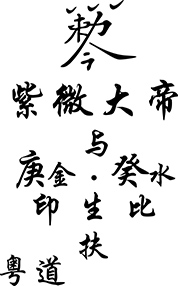 勅令
紫微大帝
与
庚金·癸水
印生比
扶
粤道